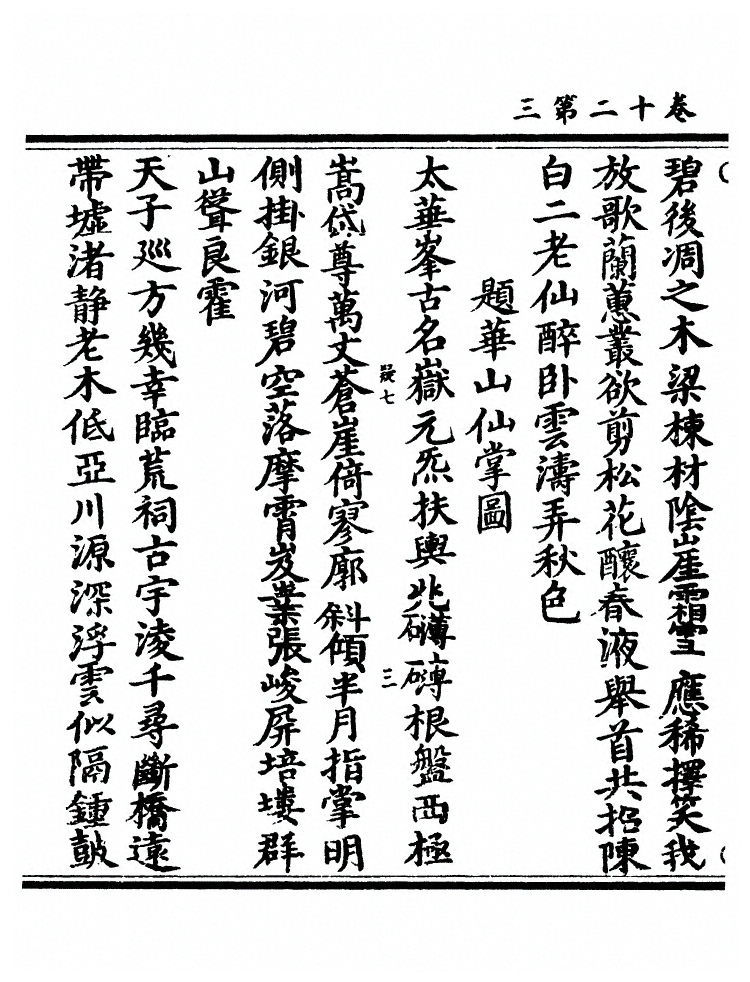 卷十二第三
碧後凋之木梁棟材陰崖霜雪應稀擇笑我
放歌蘭蕙叢欲剪松花釀春液舉首共招陳
白二老仙醉卧雲濤弄秋色
題華山仙掌圖
太華峯古名嶽元炁扶輿兆礴礴根盤西極
疑七
三
嵩岱尊萬丈蒼崖倚寥廓斜傾半月指掌明
側掛銀河碧空落摩霄岌嶪張峻屏培塿群
山聳良霍
天子廵方幾幸臨荒祠古宇淩千尋斷橋遠
帶墟渚静老木低亞川源深浮雲似隔鍾皷